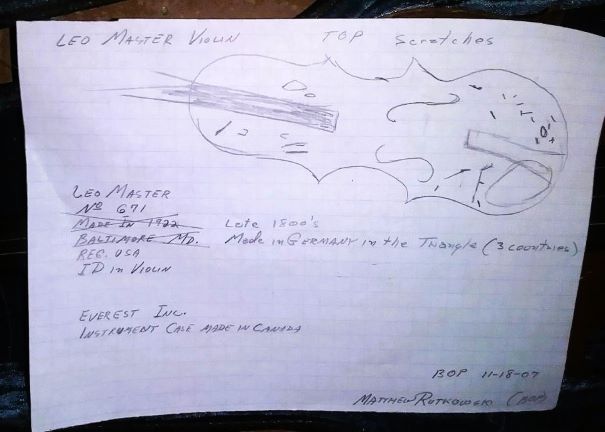 LEO MASTER VIOLIN TOP Scratches
LEO MASTER
Nº 671
MADE IN 1922
BALTIMORE MD.
REG. USA
ID in VIOLIN
Late 1800's
Made in GERMANY in the Triangle (3 countries)
EVEREST INC.
INSTRUMENT CASE MADE IN CANADA
BOP 11-18-07
MATTHEW RUTKOWSKI (BOP)